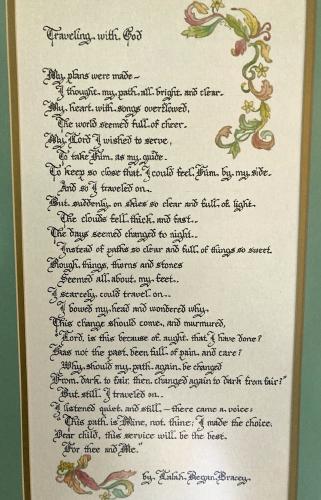 Traveling with God
My plans were made—
I thought my path all bright and clear.
My heart with songs overflowed,
The world seemed full of cheer.
My Lord I wished to serve,
To take Him as my guide
To keep so close that I could feel Him by my side
And so I traveled on..
But suddenly on skies so clear and full of light
The clouds fell thick and fast..
The days seemed changed to night..
Instead of paths so clear and full of things so sweet
Rough things, thorns and stones
Seemed all about my feet..
I scarcely could travel on..
I bowed my head and wondered why
This change should come, and murmured,
"Lord, is this because of aught that I have done?
Has not the past been full of pain and care?
Why should my path again be changed
From dark to fair then changed again to dark from fair?"
But still I traveled on..
I listened quiet and still - there came a voice:
"This path is Mine, not thine; I made the choice.
Dear child, this service will be the best
For thee and Me."
by Bracey